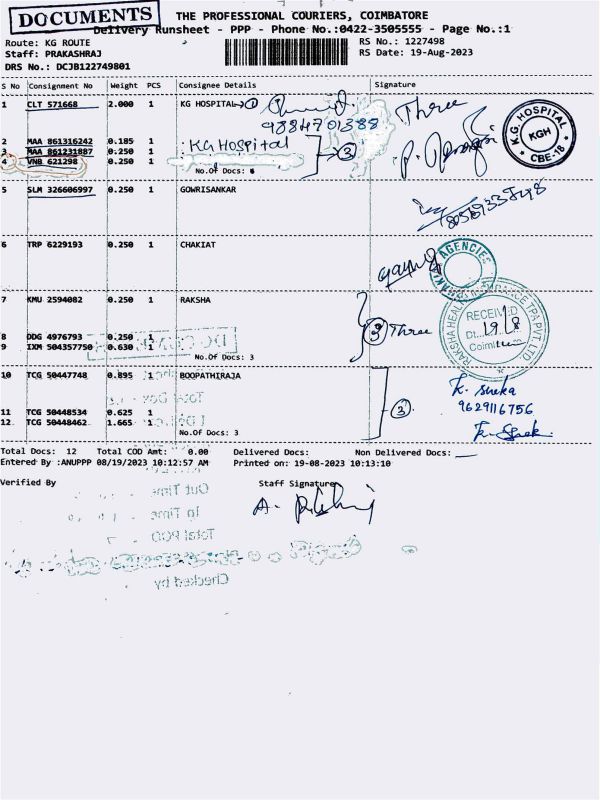 DOCUMENTS
THE PROFESSIONAL COURIERS, COIMBATORE
Delivery Runsheet - PPP - Phone No.:0422-3505555 - Page No.:1
Route: KG ROUTE
RS No.: 1227498
Staff: PRAKASHRAJ
RS Date: 19-Aug-2023
DRS No.: DCJB122749801
S No Consignment No Weight PCS Consignee Details Signature
1 CLT 571668 2.000 1 KG HOSPITAL 1
9884701388
Three
K.G. HOSPITAL
KGH
CBE-18
2 MAA 861316242 0.185 1 KG Hospital
3 MAA 861231887 0.250 1
3
4 VNB 621298 0.250 1
No.Of Docs: 6
5 SLM 326606997 0.250 1 GOWRISANKAR
6 TRP 6229193 0.250 1 CHAKIAT
AGENCIES
7 KMU 2594082 0.250 1 RAKSHA
RECEIVED
Dt. 19/8
3 Three
8 DDG 4976793 0.250 1
9 IXM 504357750 0.630 1
No.Of Docs: 3
10 TCG 50447748 0.895 1 BOOPATHIRAJA
K. sneka
9629116756
3
11 TCG 50448534 0.625 1
12 TCG 50448462 1.665 1
No.Of Docs: 3
Total Docs: 12 Total COD Amt: 0.00 Delivered Docs: Non Delivered Docs:
Entered By :ANUPPP 08/19/2023 10:12:57 AM Printed on: 19-08-2023 10:13:10
Verified By Staff Signature
Out Time
In Time
Total POD
Checked by